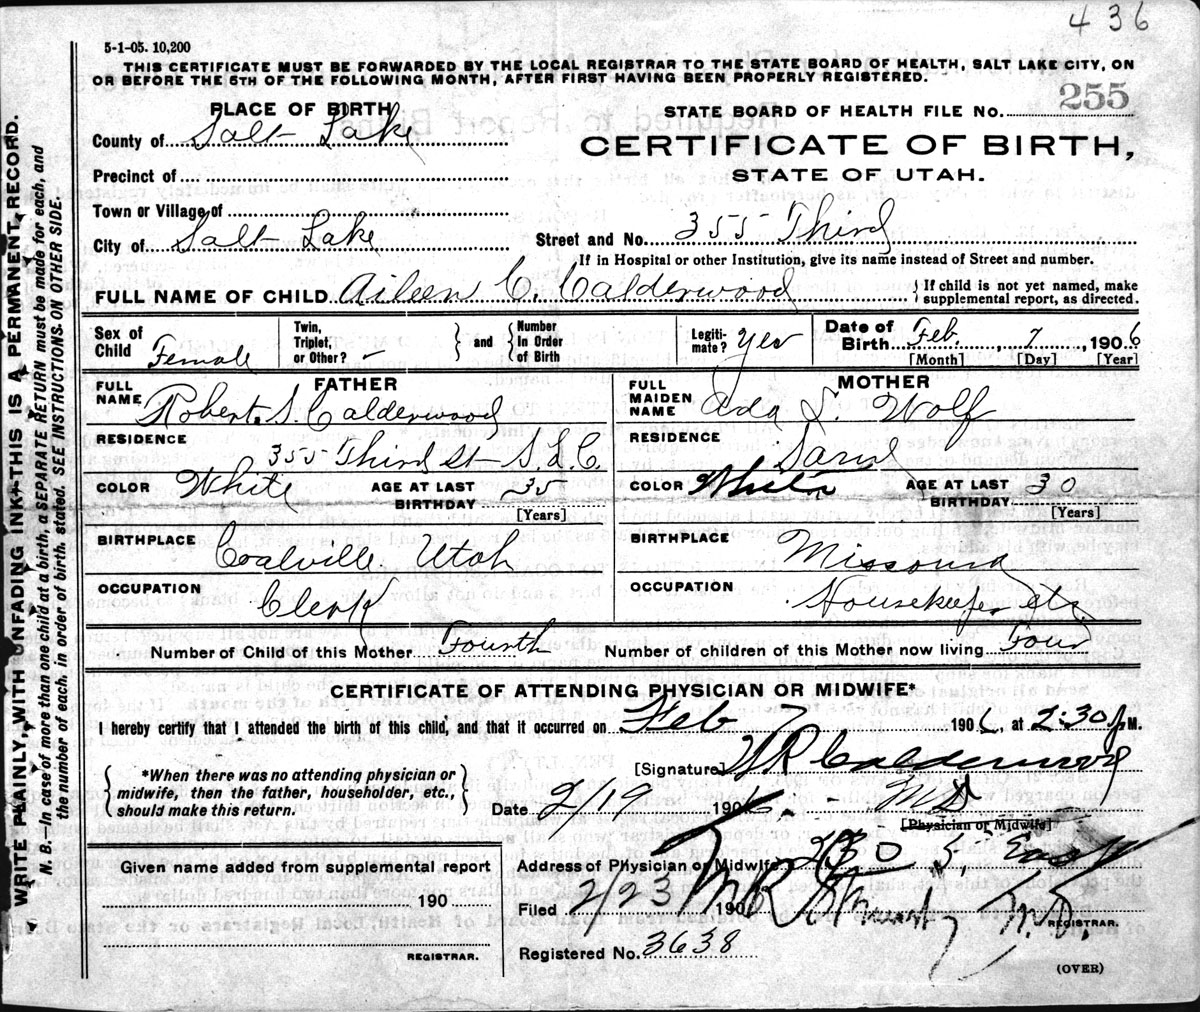 436
5-1-05. 10,200
THIS CERTIFICATE MUST BE FORWARDED BY THE LOCAL REGISTRAR TO THE STATE BOARD OF HEALTH, SALT LAKE CITY, ON
OR BEFORE THE 5TH OF THE FOLLOWING MONTH, AFTER FIRST HAVING BEEN PROPERLY REGISTERED.
PLACE OF BIRTH
County of Salt Lake
Precinct of
Town or Village of
City of Salt Lake
STATE BOARD OF HEALTH FILE No. 255
CERTIFICATE OF BIRTH,
STATE OF UTAH.
Street and No. 355 Third
If in Hospital or other Institution, give its name instead of Street and number.
FULL NAME OF CHILD Aileen C. Calderwood
If child is not yet named, make
supplemental report, as directed.
Sex of
Child Female
Twin,
Triplet,
or Other? -
and
Number
In Order
of Birth
Legiti-
mate? Yes
Date of
Birth Feb. , 7 , 1906
[Month] [Day] [Year]
FATHER
FULL
NAME Robert S. Calderwood
RESIDENCE
355 Third St S.L.C.
COLOR White
AGE AT LAST
BIRTHDAY 35
[Years]
BIRTHPLACE
Coalville Utah
OCCUPATION
Clerk
MOTHER
FULL
MAIDEN
NAME Ada L. Wolf
RESIDENCE
COLOR White
AGE AT LAST
BIRTHDAY 30
[Years]
BIRTHPLACE
Missouri
OCCUPATION
Housekeeper etc.
Number of Child of this Mother Fourth
Number of children of this Mother now living Four
CERTIFICATE OF ATTENDING PHYSICIAN OR MIDWIFE*
I hereby certify that I attended the birth of this child, and that it occurred on Feb 7 1906, at 2:30 P M.
*When there was no attending physician or
midwife, then the father, householder, etc.,
should make this return.
[Signature] W R Calderwood
Date 2/19 1906. M D
[Physician or Midwife]
Given name added from supplemental report
190
REGISTRAR.
Address of Physician or Midwife S. East
Filed 2/23 190
REGISTRAR.
Registered No. 3638
(OVER)
WRITE PLAINLY, WITH UNFADING INK—THIS IS A PERMANENT RECORD.
N. B.—In case of more than one child at a birth, a SEPARATE RETURN must be made for each, and
the number of each, in order of birth, stated. SEE INSTRUCTIONS ON OTHER SIDE.